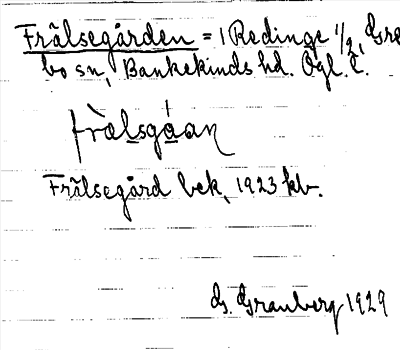 Frälsegården = 1 Redinge 1/2, Gre
bo sn, Bankekinds hd. Ögl. l.
frä̀lsgá̱an
Frälsegård bek, 1923 kb.
G. Granberg 1929